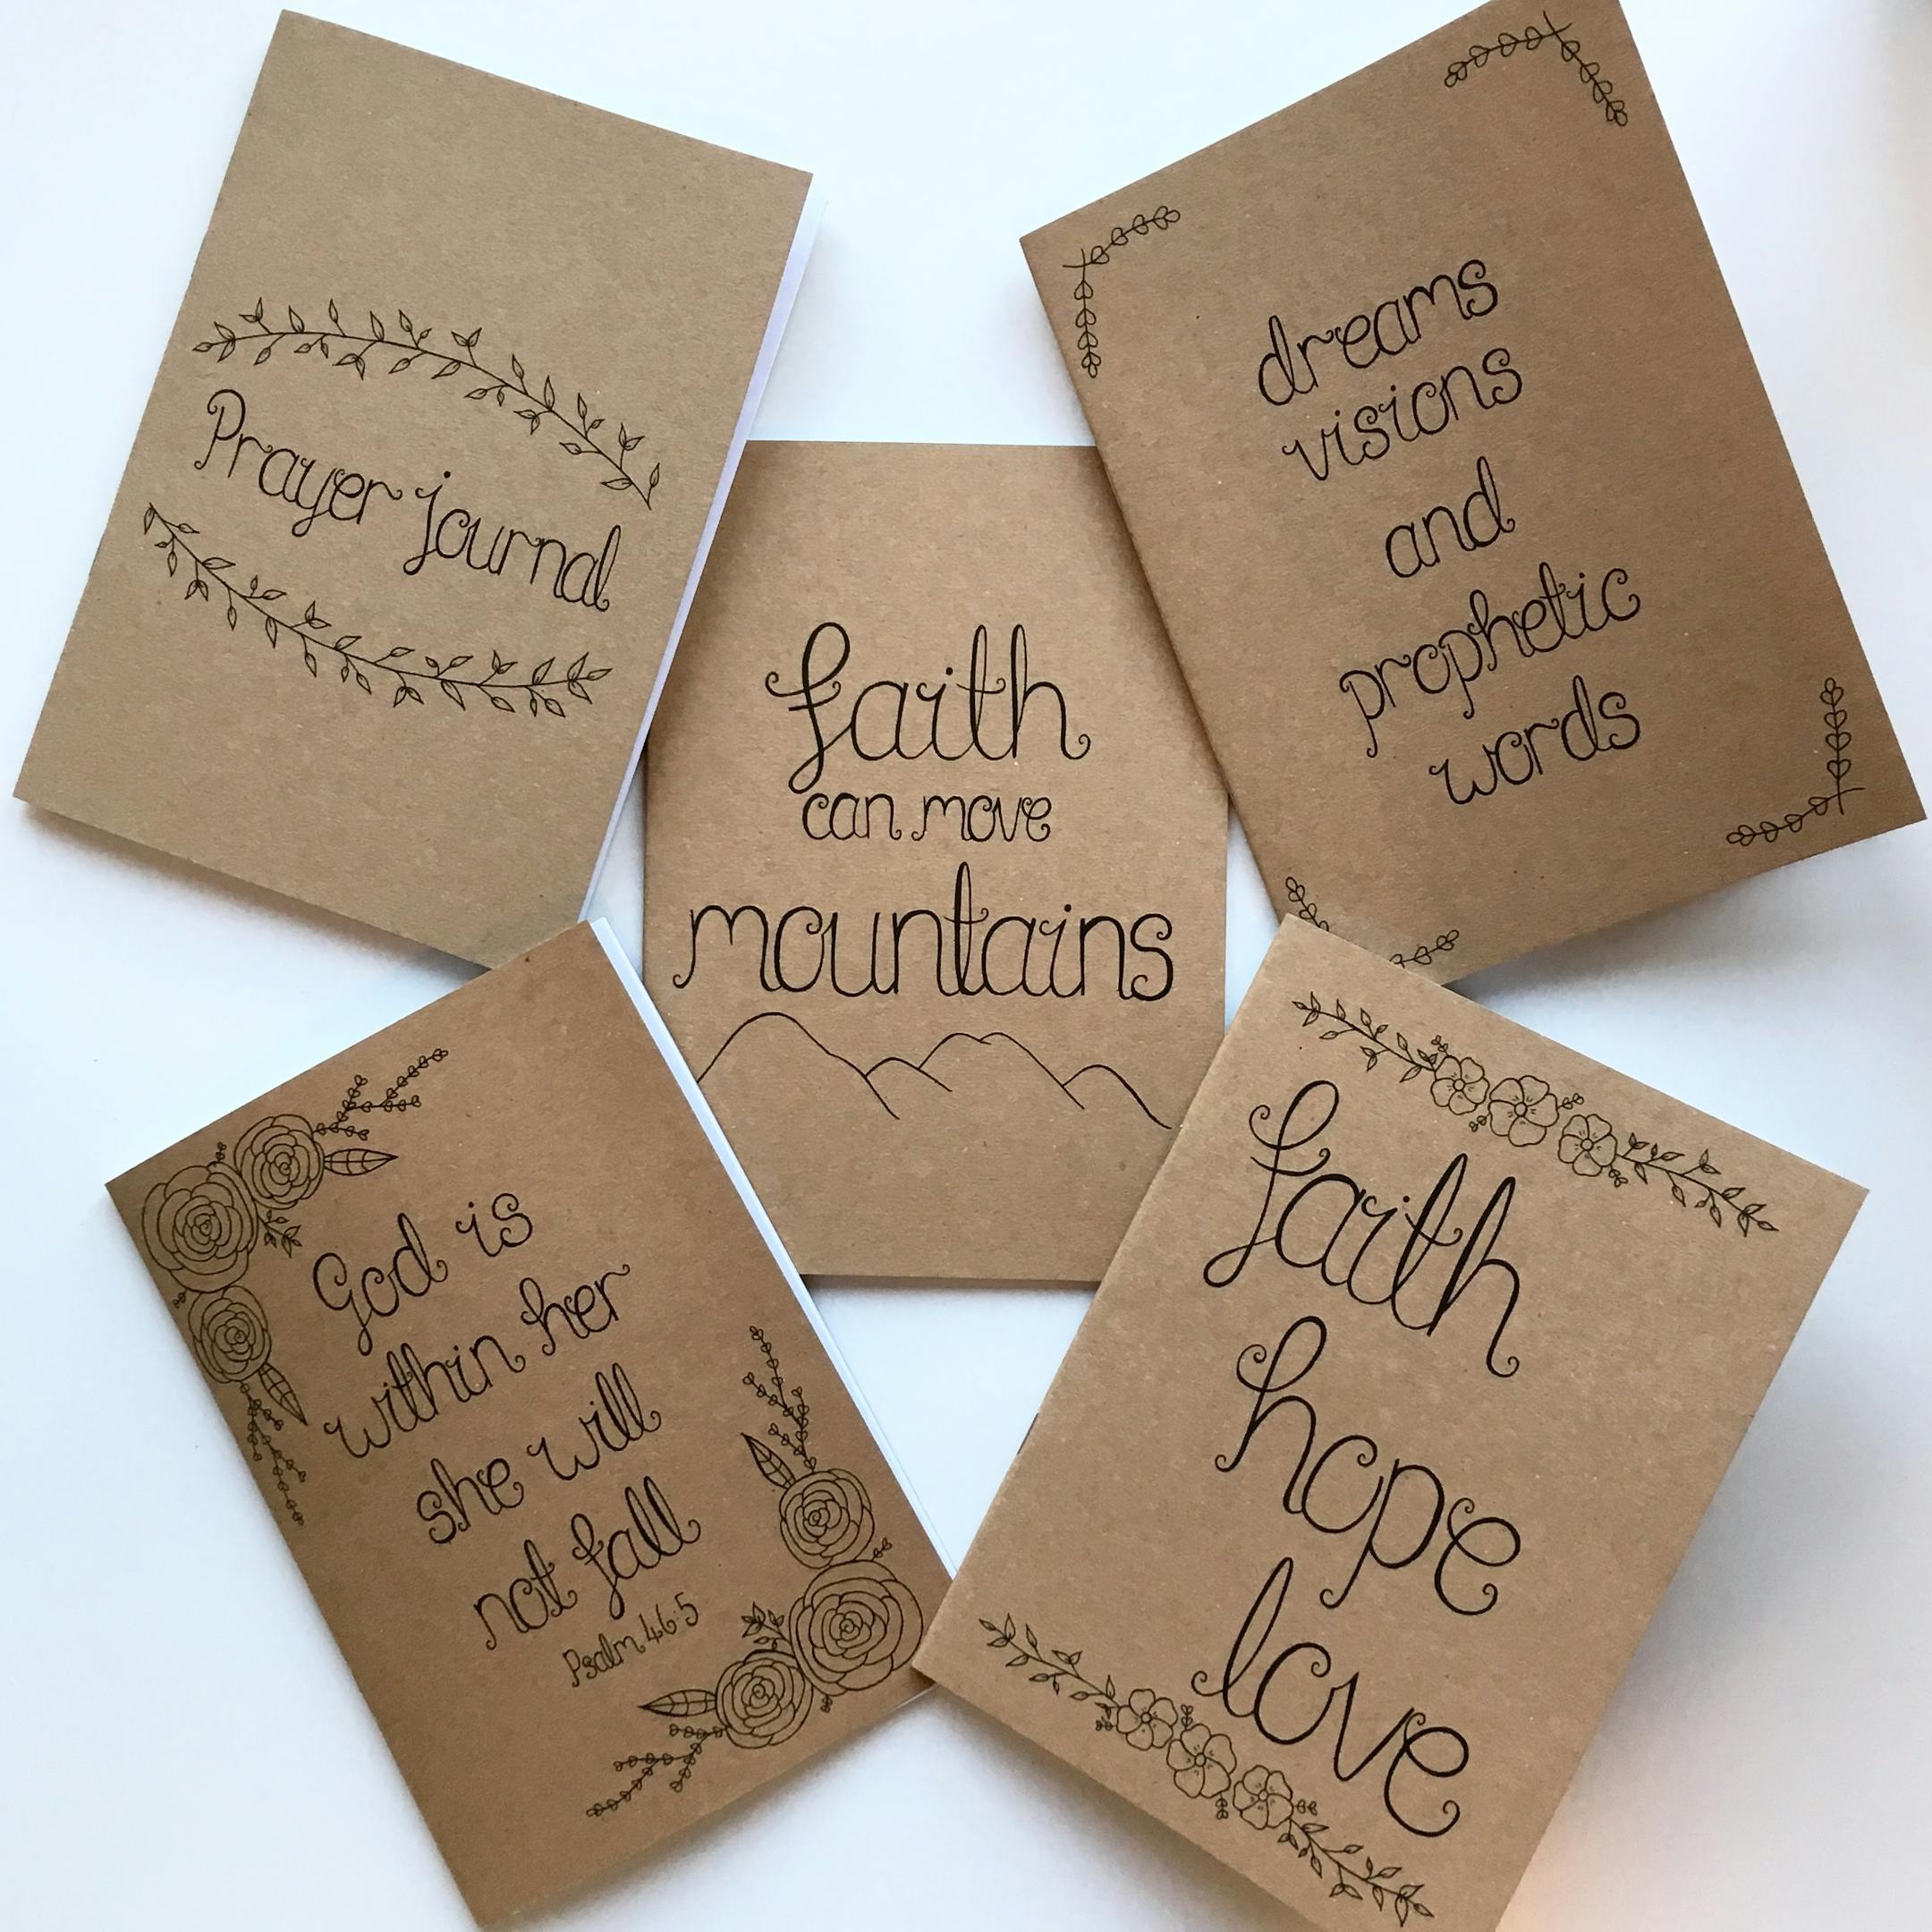 Prayer journal
dreams
visions
and
prophetic
words
faith
can move
mountains
God is
within her
she will
not fall
Psalm 46:5
faith
hope
love